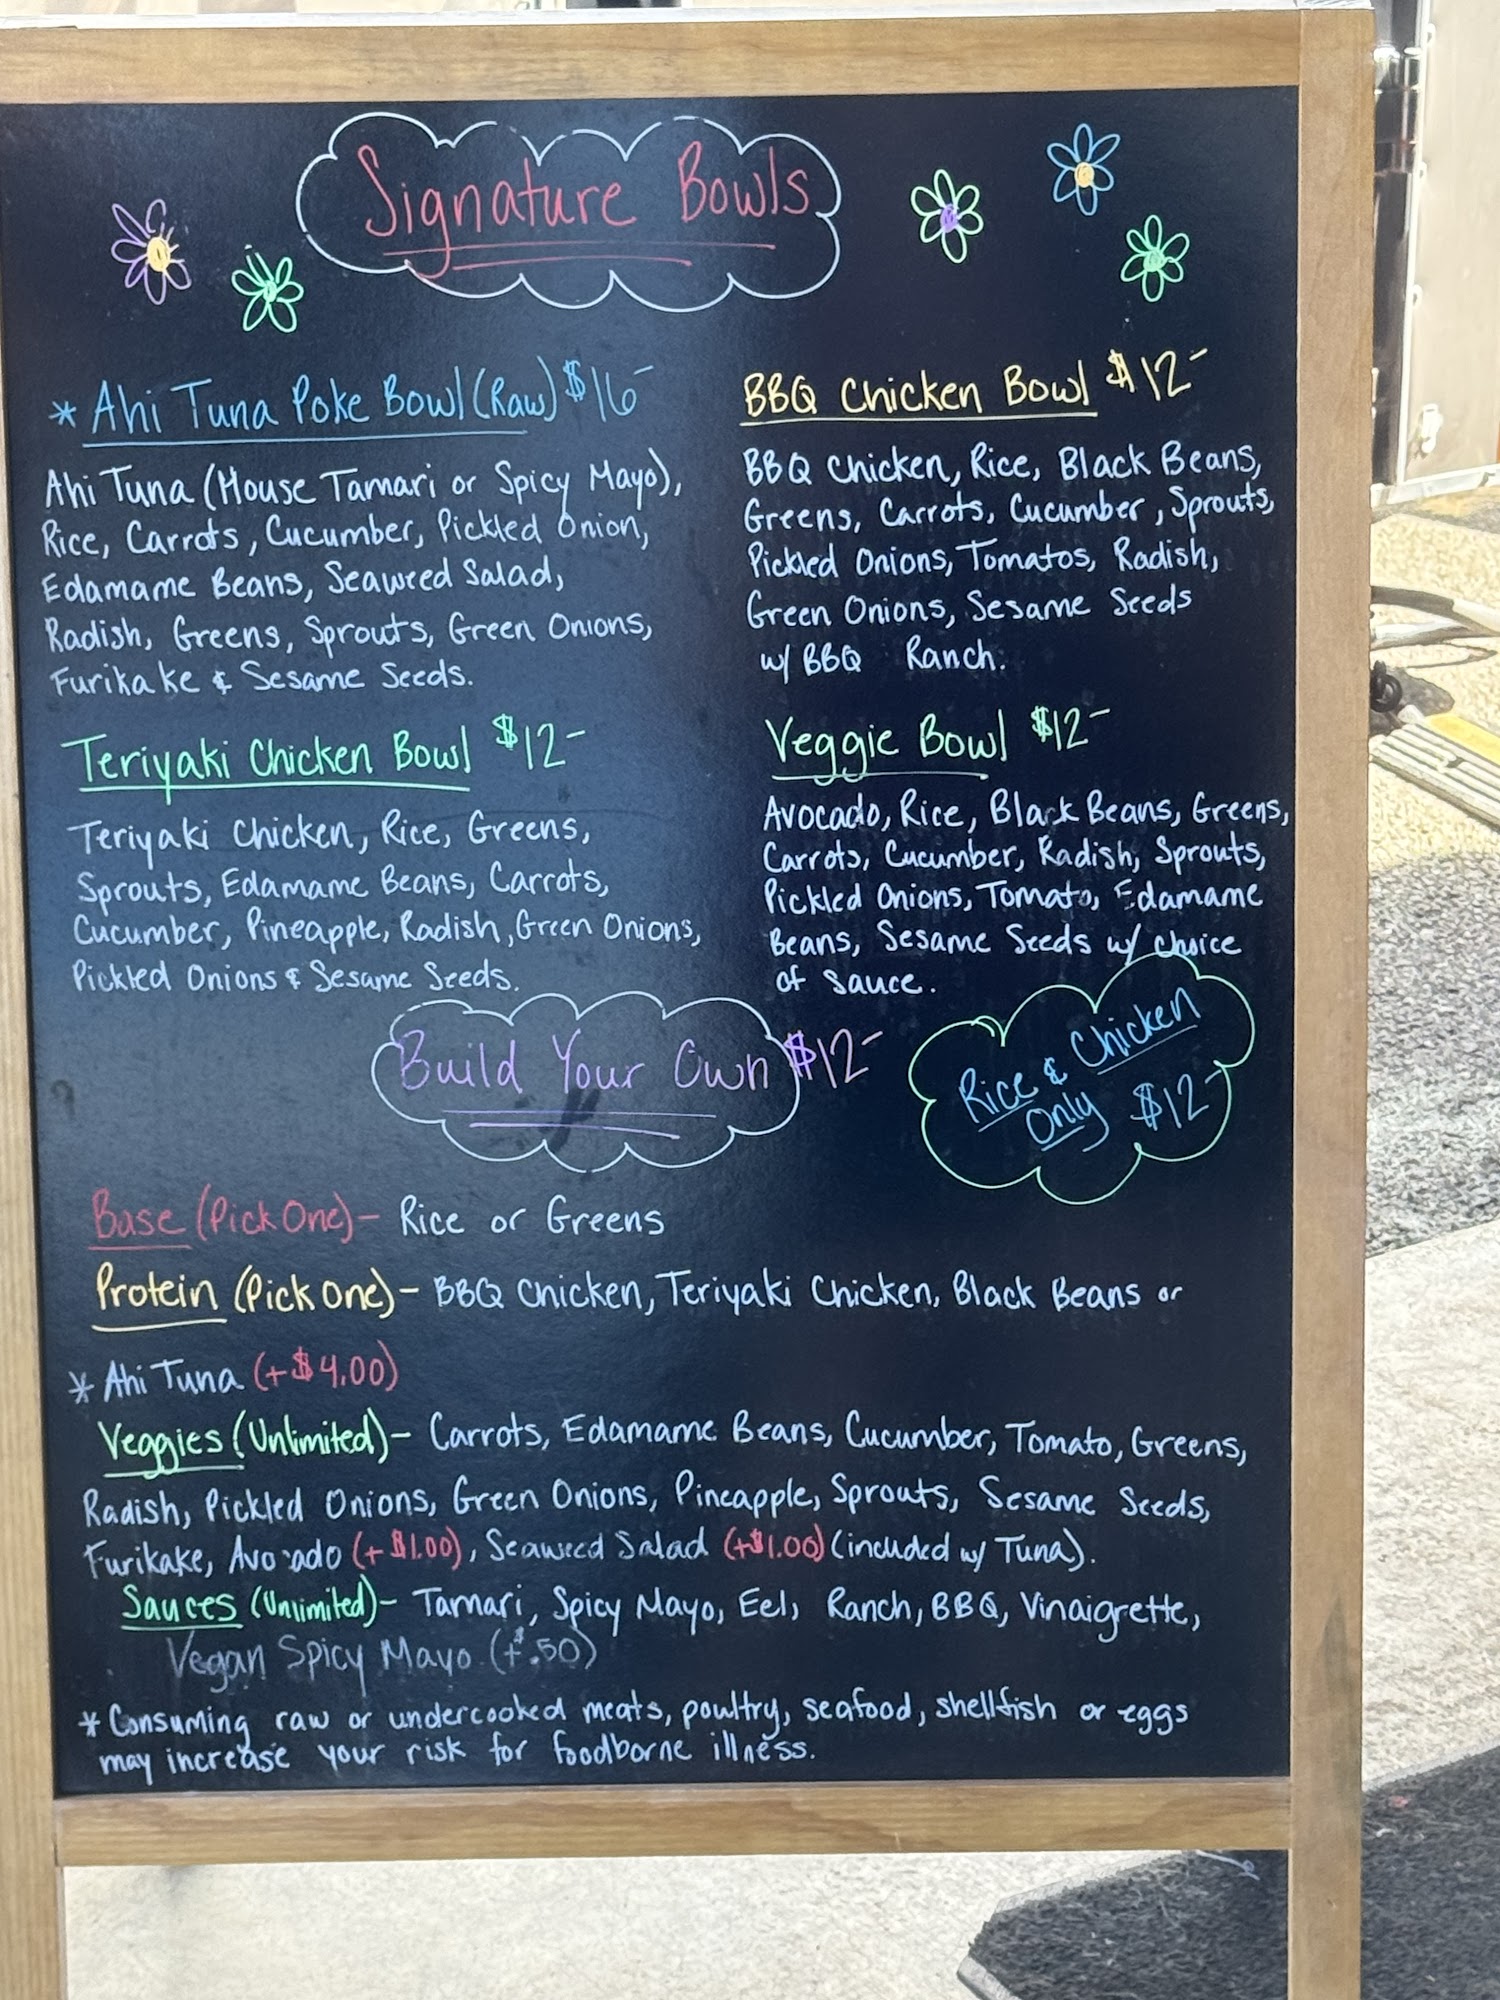 Signature Bowls
* Ahi Tuna Poke Bowl (Raw) $16-
Ahi Tuna (House Tamari or Spicy Mayo),
Rice, Carrots, Cucumber, Pickled Onion,
Edamame Beans, Seaweed Salad,
Radish, Greens, Sprouts, Green Onions,
Furikake & Sesame Seeds.
BBQ Chicken Bowl $12-
BBQ Chicken, Rice, Black Beans,
Greens, Carrots, Cucumber, Sprouts,
Pickled Onions, Tomatos, Radish,
Green Onions, Sesame Seeds
w/ BBQ Ranch.
Teriyaki Chicken Bowl $12-
Teriyaki Chicken, Rice, Greens,
Sprouts, Edamame Beans, Carrots,
Cucumber, Pineapple, Radish, Green Onions,
Pickled Onions & Sesame Seeds.
Veggie Bowl $12-
Avocado, Rice, Black Beans, Greens,
Carrots, Cucumber, Radish, Sprouts,
Pickled Onions, Tomato, Edamame
Beans, Sesame Seeds w/ choice
of sauce.
Build Your Own $12-
Rice & Chicken
Only $12-
Base (Pick One) - Rice or Greens
Protein (Pick One) - BBQ Chicken, Teriyaki Chicken, Black Beans or
* Ahi Tuna (+$4.00)
Veggies (Unlimited) - Carrots, Edamame Beans, Cucumber, Tomato, Greens,
Radish, Pickled Onions, Green Onions, Pineapple, Sprouts, Sesame Seeds,
Furikake, Avocado (+$1.00), Seaweed Salad (+$1.00) (included w/ Tuna).
Sauces (Unlimited) - Tamari, Spicy Mayo, Eel, Ranch, BBQ, Vinaigrette,
Vegan Spicy Mayo (+$.50)
* Consuming raw or undercooked meats, poultry, seafood, shellfish or eggs
may increase your risk for foodborne illness.